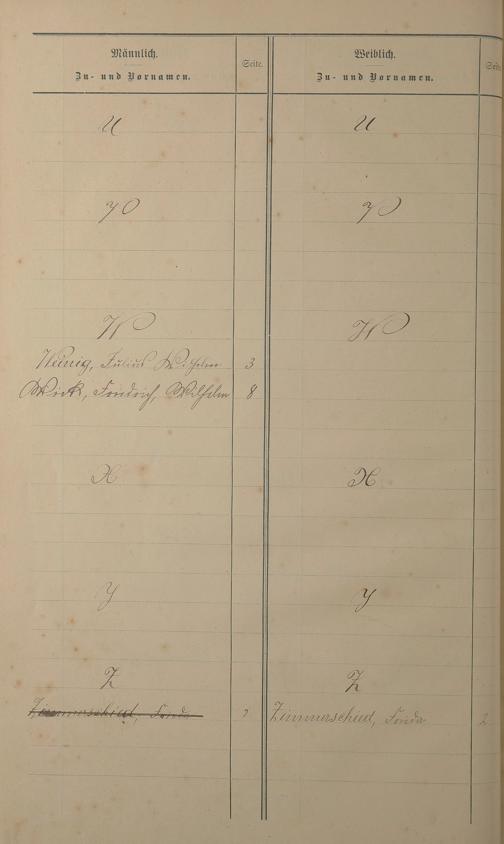 Männlich.
Zu- und Vornamen.
Seite.
Weiblich.
Zu- und Vornamen.
Seite
U
U
V
V
W
W
Julius Wilhelm 3
Wick, Friedrich, Wilhelm 8
X
X
Y
Y
Z
Z
Zimmerschied, Frieda
Zimmerschied, Frieda 2